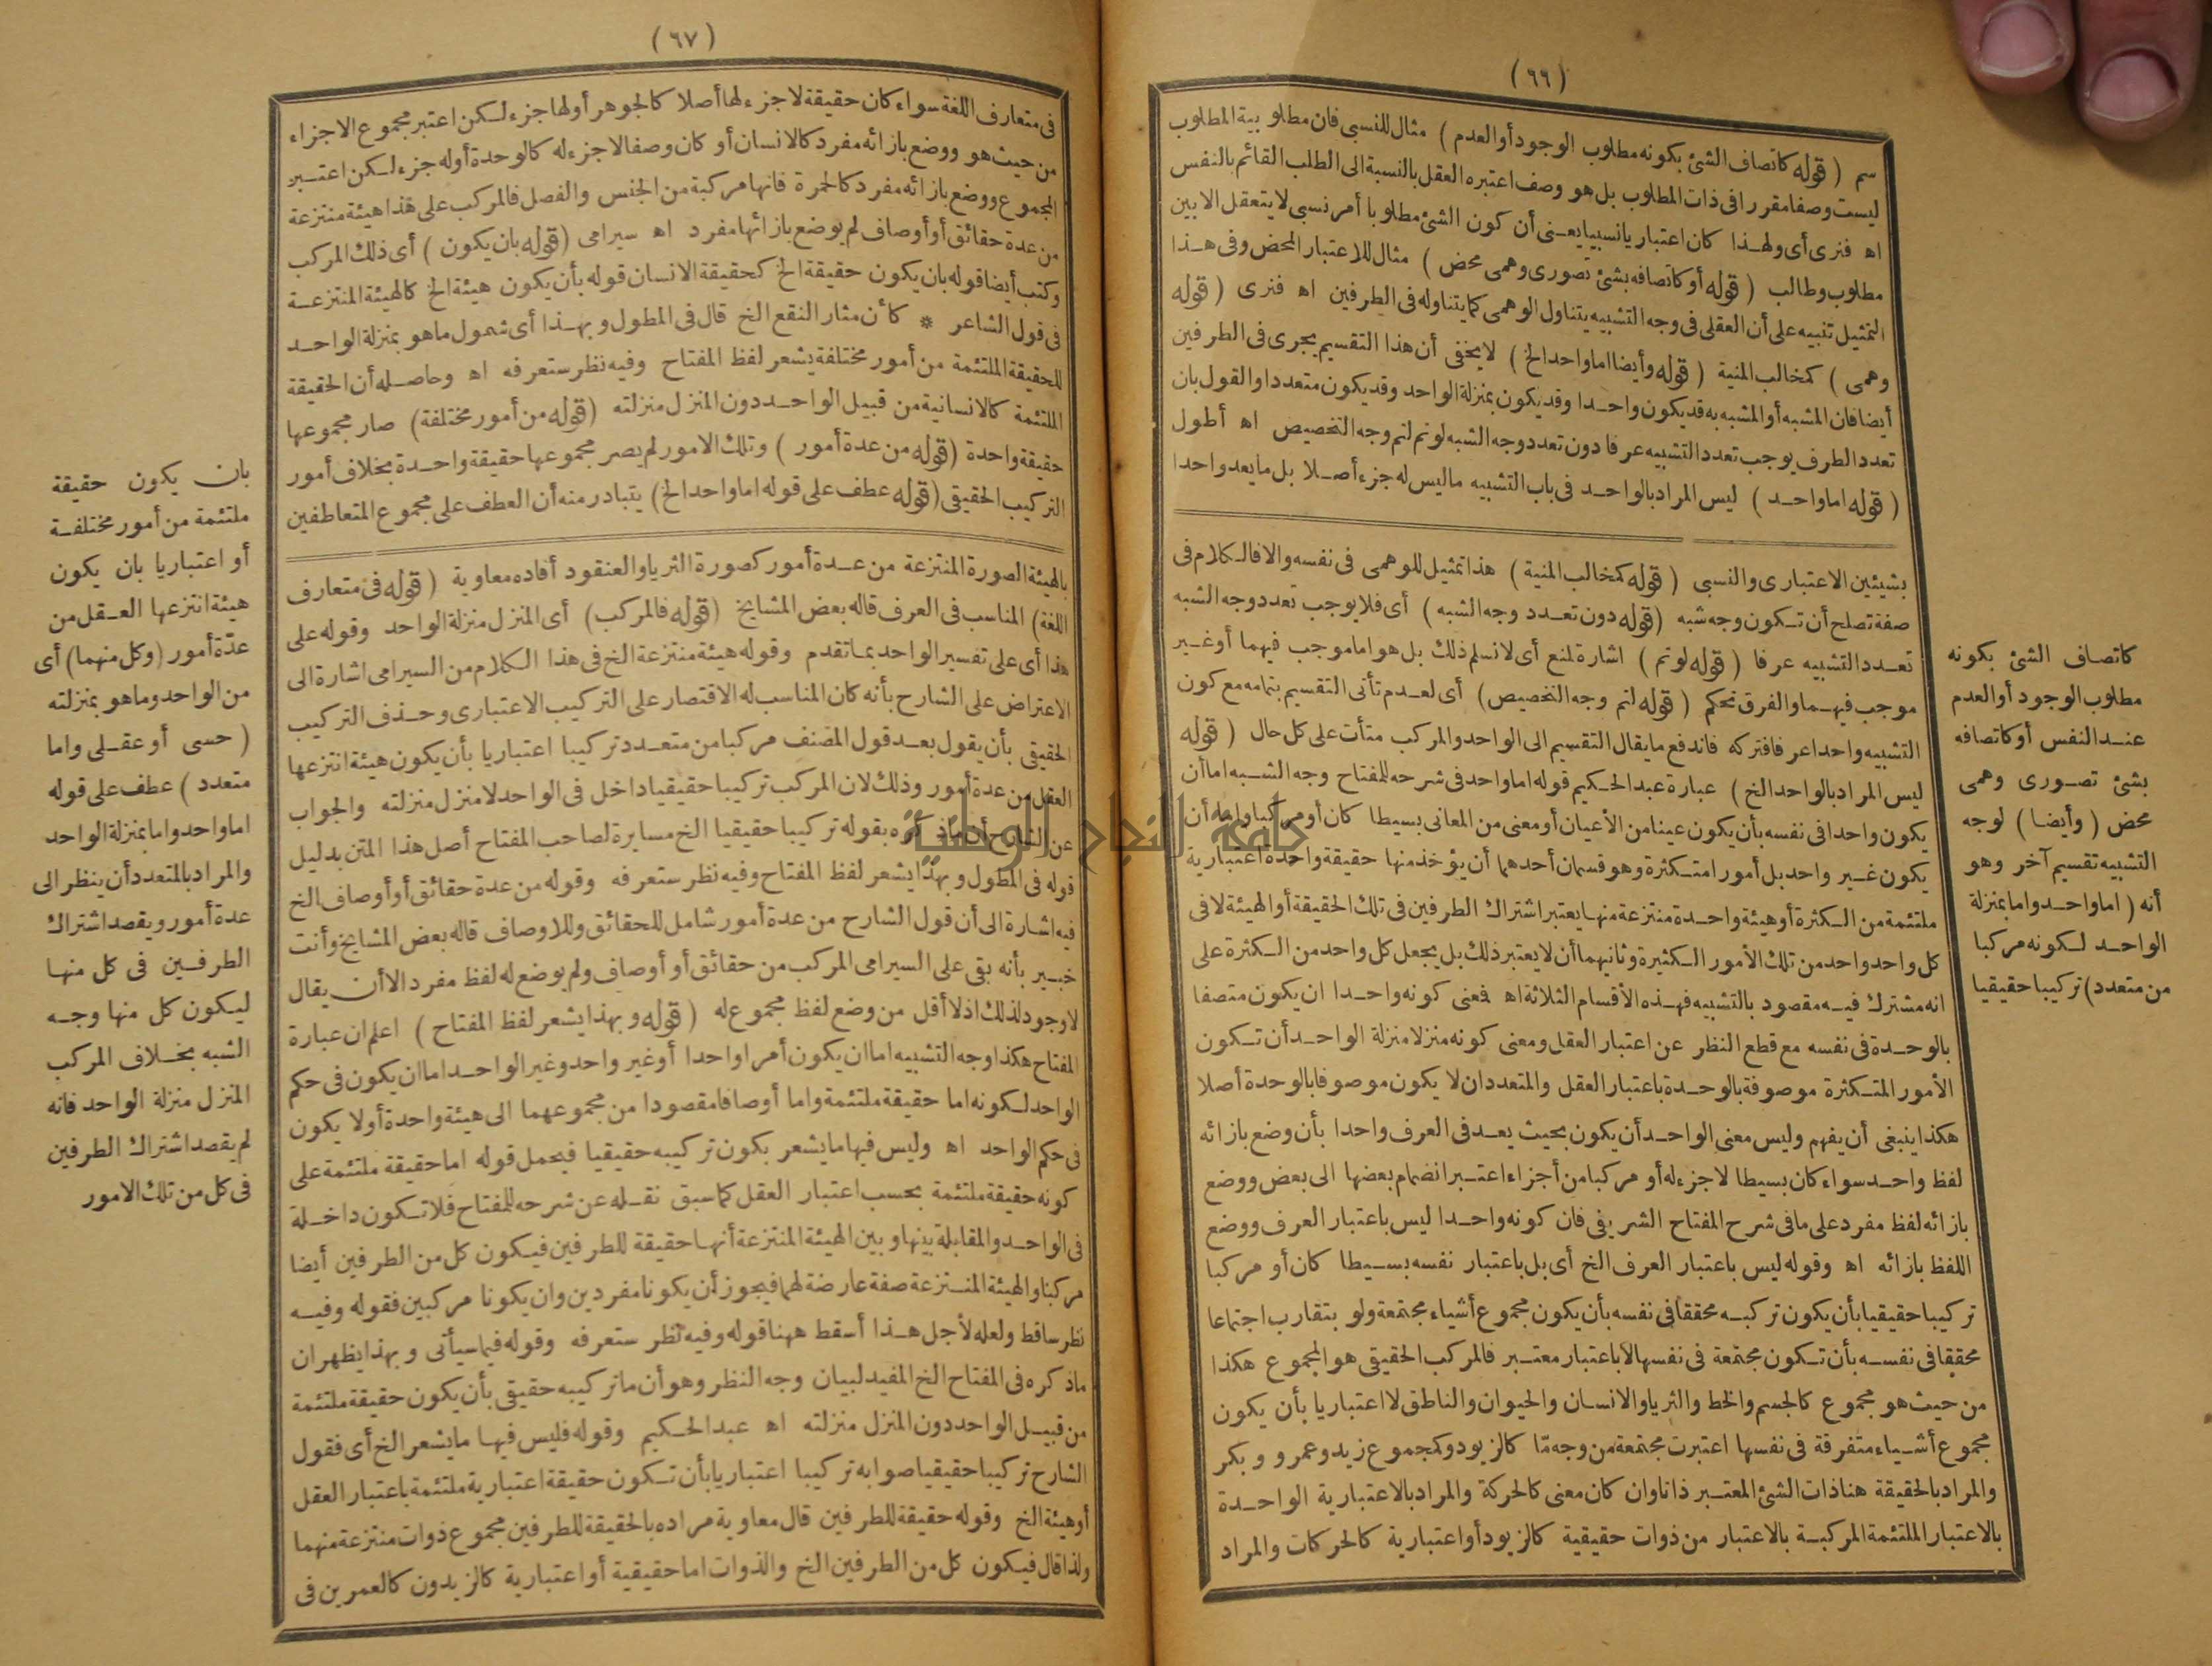 (٦٦)
سم (قوله كاتصاف الشئ بكونه مطلوب الوجود أو العدم) مثال للنسبي فان مطلوبية المطلوب
ليست وصفا مقررا في ذات المطلوب بل هو وصف اعتبره العقل بالنسبة الى الطلب القائم بالنفس
اه فنرى أى ولهذا كان اعتباريا نسبيا يعنى أن كون الشئ مطلوبا أمر نسبي لا يتعقل الا بين
مطلوب وطالب (قوله أو كاتصافه بشئ تصورى وهمى محض) مثال للاعتبار المحض وفى هذا
التمثيل تنبيه على أن العقلى فى وجه التشبيه يتناول الوهمى كما يتناوله فى الطرفين اه فنرى (قوله
وهمى) كمخالب المنية (قوله وأيضا اما واحد الخ) لا يخفى أن هذا التقسيم يجرى فى الطرفين
أيضا فان المشبه أو المشبه به قد يكون واحدا وقد يكون بمنزلة الواحد وقد يكون متعددا والقول بان
تعدد الطرف يوجب تعدد التشبيه عرفا دون تعدد وجه الشبه لو تم لتم وجه التخصيص اه أطول
(قوله اما واحد) ليس المراد بالواحد فى باب التشبيه ما ليس له جزء أصلا بل ما يعد واحدا
بشيئين الاعتبارى والنسبى (قوله كمخالب المنية) هذا تمثيل للوهمى فى نفسه والا فالكلام فى
صفة تصلح أن تكون وجه شبه (قوله دون تعدد وجه الشبه) أى فلا يوجب تعدد وجه الشبه
تعدد التشبيه عرفا (قوله لو تم) اشارة لمنع أى لا نسلم ذلك بل هو اما موجب فيهما أو غير
موجب فيهما والفرق تحكم (قوله لتم وجه التخصيص) أى لعدم تأتى التقسيم بتمامه مع كون
التشبيه واحدا عرفا فتركه فاندفع ما يقال التقسيم الى الواحد والمركب متأت على كل حال (قوله
ليس المراد بالواحد الخ) عبارة عبد الحكيم قوله اما واحد فى شرحه للمفتاح وجه الشبه اما أن
يكون واحدا فى نفسه بأن يكون عينا من الأعيان أو معنى من المعانى بسيطا كان أو مركبا واما أن
يكون غير واحد بل أمورا متكثرة وهو قسمان أحدهما أن يؤخذ منها حقيقة واحدة اعتبارية
ملتئمة من الكثرة أو هيئة واحدة منتزعة منها يعتبر اشتراك الطرفين فى تلك الحقيقة أو الهيئة لا فى
كل واحد واحد من تلك الأمور الكثيرة وثانيهما أن لا يعتبر ذلك بل يجعل كل واحد من الكثرة على
انه مشترك فيه مقصود بالتشبيه فهذه الأقسام الثلاثة اه فمعنى كونه واحدا ان يكون متصفا
بالوحدة فى نفسه مع قطع النظر عن اعتبار العقل ومعنى كونه منزلا منزلة الواحد أن تكون
الأمور المتكثرة موصوفة بالوحدة باعتبار العقل والمتعدد ان لا يكون موصوفا بالوحدة أصلا
هكذا ينبغى أن يفهم وليس معنى الواحد أن يكون بحيث يعد فى العرف واحدا بأن وضع بازائه
لفظ واحد سواء كان بسيطا لا جزء له أو مركبا من أجزاء اعتبر انضمام بعضها الى بعض ووضع
بازائه لفظ مفرد على ما فى شرح المفتاح الشريفى فان كونه واحدا ليس باعتبار العرف ووضع
اللفظ بازائه اه وقوله ليس باعتبار العرف الخ أى بل باعتبار نفسه بسيطا كان أو مركبا
تركيبا حقيقيا بأن يكون تركبه محققا فى نفسه بأن يكون مجموع أشياء مجتمعة ولو بتقارب اجتماعا
محققا فى نفسه بأن تكون مجتمعة فى نفسها لا باعتبار معتبر فالمركب الحقيقى هو المجموع هكذا
من حيث هو مجموع كالجسم والخط والثريا والانسان والحيوان والناطق لا اعتباريا بأن يكون
مجموع أشياء متفرقة فى نفسها اعتبرت مجتمعة من وجه مّا كالزيود وكمجموع زيد وعمرو وبكر
والمراد بالحقيقة هنا ذات الشئ المعتبر ذاتا وان كان معنى كالحركة والمراد بالاعتبارية الواحدة
بالاعتبار الملتئمة المركبة بالاعتبار من ذوات حقيقية كالزيود أو اعتبارية كالحركات والمراد
كاتصاف الشئ بكونه
مطلوب الوجود أو العدم
عند النفس أو كاتصافه
بشئ تصورى وهمى
محض (وأيضا) لوجه
التشبيه تقسيم آخر وهو
أنه (اما واحد واما بمنزلة
الواحد لكونه مركبا
من متعدد) تركيبا حقيقيا
(٦٧)
فى متعارف اللغة سواء كان حقيقة لا جزء لها أصلا كالجوهر أو لها جزء لكن اعتبر مجموع الاجزاء
من حيث هو ووضع بازائه مفرد كالانسان أو كان وصفا لا جزء له كالوحدة أو له جزء لكن اعتبر
المجموع ووضع بازائه مفرد كالحمرة فانها مركبة من الجنس والفصل فالمركب على هذا هيئة منتزعة
من عدة حقائق أو أوصاف لم يوضع بازائها مفرد اه سيرامى (قوله بان يكون) أى ذلك المركب
وكتب أيضا قوله بان يكون حقيقة الخ كحقيقة الانسان قوله بأن يكون هيئة الخ كالهيئة المنتزعة
فى قول الشاعر * كأن مثار النقع الخ قال فى المطول وبهذا أى شمول ما هو بمنزلة الواحد
للحقيقة الملتئمة من أمور مختلفة يشعر لفظ المفتاح وفيه نظر ستعرفه اه وحاصله أن الحقيقة
الملتئمة كالانسانية من قبيل الواحد دون المنزل منزلته (قوله من أمور مختلفة) صار مجموعها
حقيقة واحدة (قوله من عدة أمور) وتلك الامور لم يصر مجموعها حقيقة واحدة بخلاف أمور
التركيب الحقيقى (قوله عطف على قوله اما واحد الخ) يتبادر منه أن العطف على مجموع المتعاطفين
بالهيئة الصورة المنتزعة من عدة أمور كصورة الثريا والعنقود أفاده معاوية (قوله فى متعارف
اللغة) المناسب فى العرف قاله بعض المشايخ (قوله فالمركب) أى المنزل منزلة الواحد وقوله على
هذا أى على تفسير الواحد بما تقدم وقوله هيئة منتزعة الخ فى هذا الكلام من السيرامى اشارة الى
الاعتراض على الشارح بأنه كان المناسب له الاقتصار على التركيب الاعتبارى وحذف التركيب
الحقيقى بأن يقول بعد قول المصنف مركبا من متعدد تركيبا اعتباريا بأن يكون هيئة انتزعها
العقل من عدة أمور وذلك لان المركب تركيبا حقيقيا داخل فى الواحد لا منزل منزلته والجواب
عن الشارح أن ما ذكره بقوله تركيبا حقيقيا الخ مسايرة لصاحب المفتاح أصل هذا المتن بدليل
قوله فى المطول وبهذا يشعر لفظ المفتاح وفيه نظر ستعرفه وقوله من عدة حقائق أو أوصاف الخ
فيه اشارة الى أن قول الشارح من عدة أمور شامل للحقائق وللاوصاف قاله بعض المشايخ وأنت
خبير بأنه بقى على السيرامى المركب من حقائق أو أوصاف ولم يوضع له لفظ مفرد الا أن يقال
لا وجود لذلك اذ لا أقل من وضع لفظ مجموع له (قوله وبهذا يشعر لفظ المفتاح) اعلم ان عبارة
المفتاح هكذا وجه التشبيه اما ان يكون أمرا واحدا أو غير واحد وغير الواحد اما ان يكون فى حكم
الواحد لكونه اما حقيقة ملتئمة واما أوصافا مقصودا من مجموعهما الى هيئة واحدة أو لا يكون
فى حكم الواحد اه وليس فيها ما يشعر بكون تركيبه حقيقيا فيحمل قوله اما حقيقة ملتئمة على
كونه حقيقة ملتئمة بحسب اعتبار العقل كما سبق نقله عن شرحه للمفتاح فلا تكون داخلة
فى الواحد والمقابلة بينها وبين الهيئة المنتزعة أنها حقيقة للطرفين فيكون كل من الطرفين أيضا
مركبا والهيئة المنتزعة صفة عارضة لهما فيجوز أن يكونا مفردين وان يكونا مركبين فقوله وفيه
نظر ساقط ولعله لأجل هذا أسقط ههنا قوله وفيه نظر ستعرفه وقوله فيما سيأتى وبهذا يظهر ان
ما ذكره فى المفتاح الخ المفيد لبيان وجه النظر وهو أن ما تركيبه حقيقى بأن يكون حقيقة ملتئمة
من قبيل الواحد دون المنزل منزلته اه عبد الحكيم وقوله فليس فيها ما يشعر الخ أى فقول
الشارح تركيبا حقيقيا صوابه تركيبا اعتباريا بأن تكون حقيقة اعتبارية ملتئمة باعتبار العقل
أو هيئة الخ وقوله حقيقة للطرفين قال معاوية مراده بالحقيقة للطرفين مجموع ذوات منتزعة منهما
ولذا قال فيكون كل من الطرفين الخ والذوات اما حقيقية أو اعتبارية كالزيدون كالعمرين فى
بان يكون حقيقة
ملتئمة من أمور مختلفة
أو اعتباريا بان يكون
هيئة انتزعها العقل من
عدّة أمور (وكل منهما) أى
من الواحد وما هو بمنزلته
(حسى أو عقلى واما
متعدد) عطف على قوله
اما واحد واما بمنزلة الواحد
والمراد بالمتعدد أن ينظر الى
عدة أمور ويقصد اشتراك
الطرفين فى كل منها
ليكون كل منها وجه
الشبه بخلاف المركب
المنزل منزلة الواحد فانه
لم يقصد اشتراك الطرفين
فى كل من تلك الامور
جامعة النجاح الوطنية